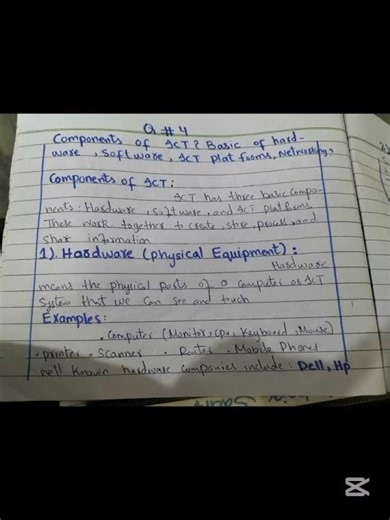 Q #4
Components of ICT? Basic of hard-
ware, Software, ICT plat forms, Networking?
Components of ICT:
ICT has three basic compo-
nents: Hardware, software, and ICT platforms.
These work together to create, store, process, and
share information
1). Hardware (physical Equipment):
Hardware
means the physical parts of a computer or ICT
System that we can see and touch
Examples:
. Computer (Monitor, CPU, Keyboard, Mouse)
. printer . Scanner . Router . Mobile Phones
well known hardware companies include: Dell, Hp